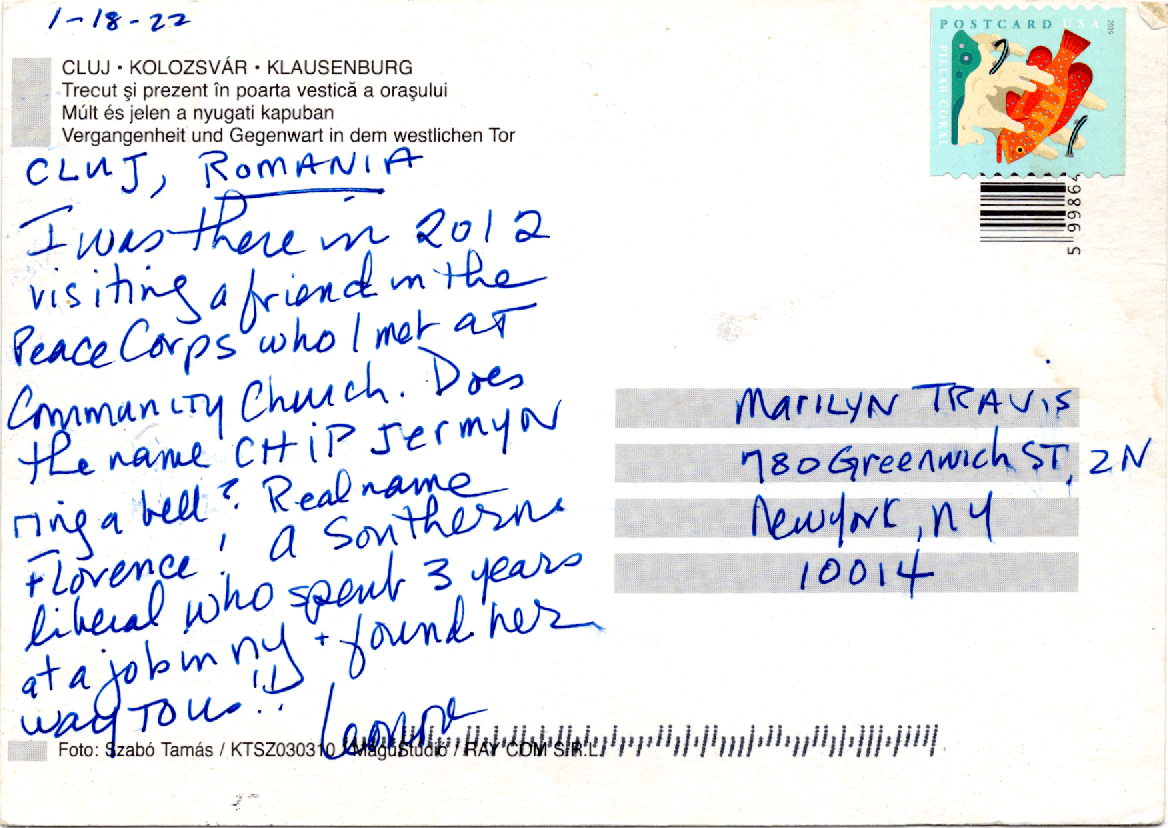 1-18-22
CLUJ • KOLOZSVÁR • KLAUSENBURG
Trecut şi prezent în poarta vestică a oraşului
Múlt és jelen a nyugati kapuban
Vergangenheit und Gegenwart in dem westlichen Tor
CLUJ, ROMANIA
I was there in 2012
visiting a friend in the
Peace Corps who I met at
Community Church. Does
the name CHIP Jermyn
ring a bell? Real name
Florence! a Southern
liberal who spent 3 years
at a job in NY + found her
way to us!!
Leonore
Foto: Szabó Tamás / KTSZ030310 / MaguStudio / RAY COM S.R.L.
POSTCARD USA
2019
PILLAR CORAL
5 99864
Marilyn Travis
780 Greenwich ST, 2N
New York, NY
10014